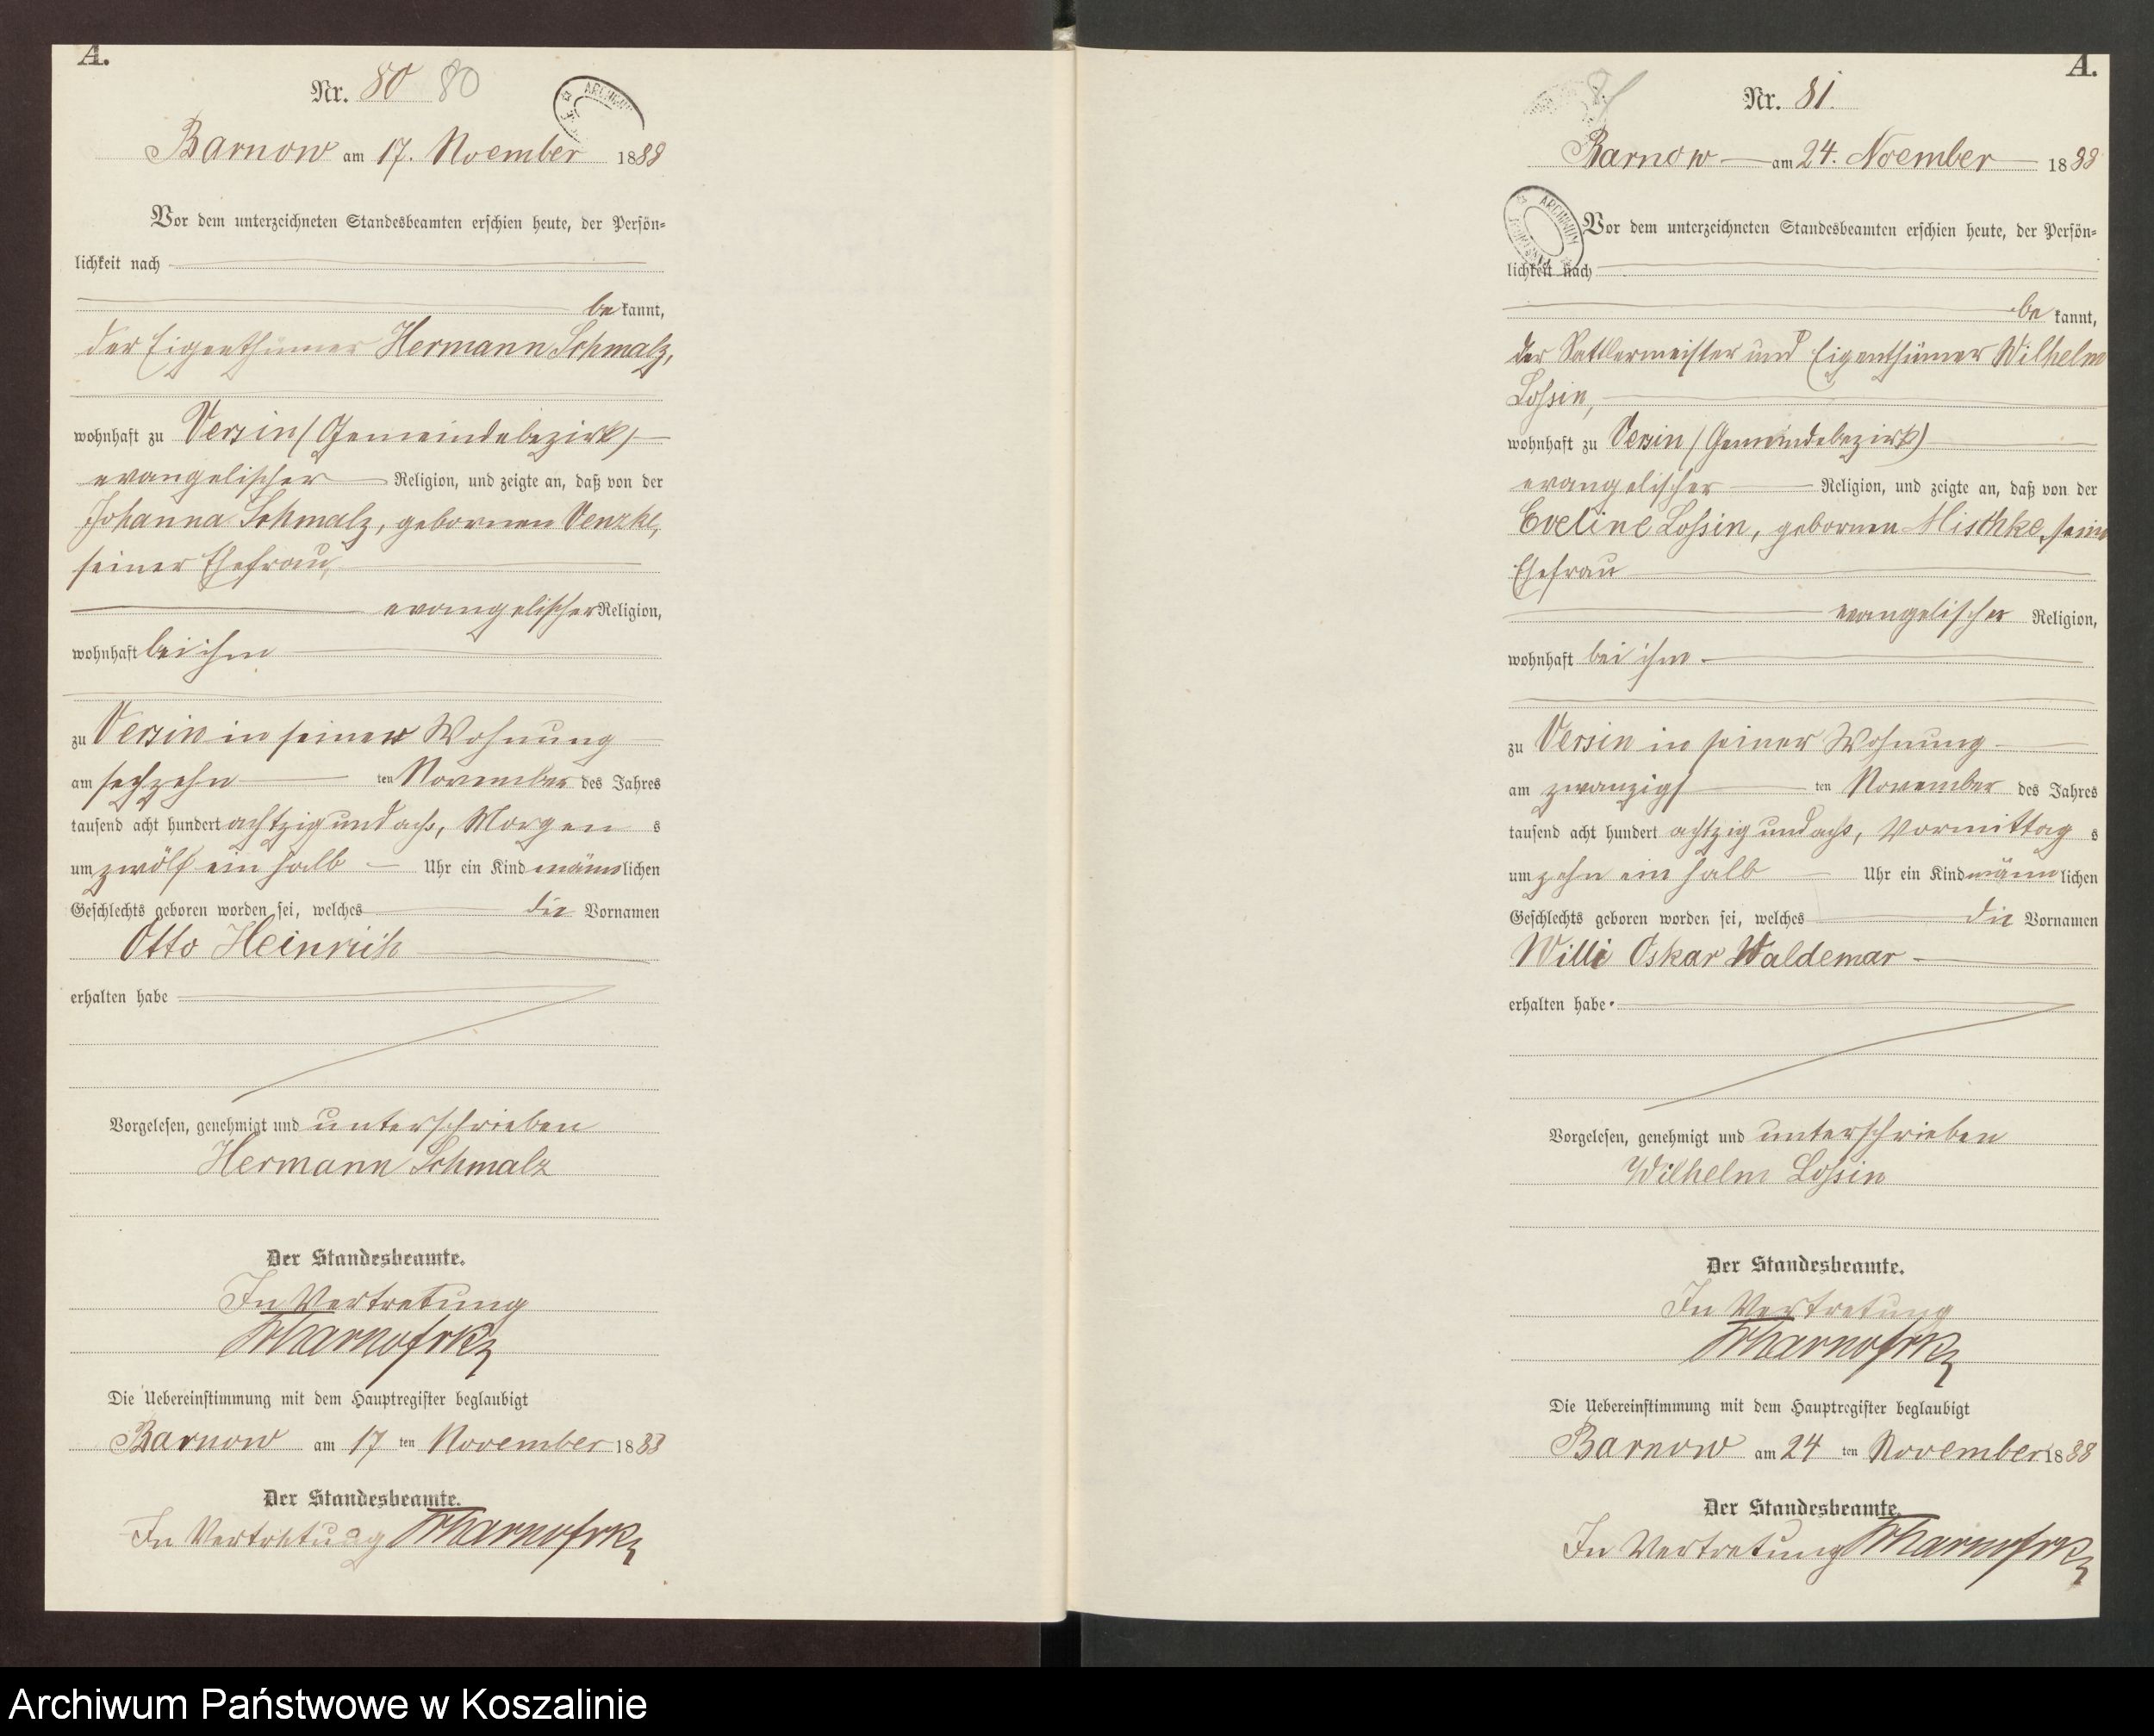 A.
Nr. 80 80
ARCHIWUM
Barnow am 17. Noember 1888
Vor dem unterzeichneten Standesbeamten erschien heute, der Persön=
lichkeit nach
be kannt,
der Eigenthümer Hermann Schmalz,
wohnhaft zu Versin (Gemeindebezirk)
evangelischer Religion, und zeigte an, daß von der
Johanna Schmalz, geborenen Venzke,
seiner Ehefrau,
evangelischer Religion,
wohnhaft bei ihm
zu Versin in seiner Wohnung
am sechzehn ten November des Jahres
tausend acht hundert achtzig und acht, Morgen s
um zwölf ein halb Uhr ein Kind männlichen
Geschlechts geboren worden sei, welches die Vornamen
Otto Heinrich
erhalten habe
Vorgelesen, genehmigt und unterschrieben
Hermann Schmalz
Der Standesbeamte.
In Vertretung
Die Uebereinstimmung mit dem Hauptregister beglaubigt
Barnow am 17 ten November 1888
Der Standesbeamte.
In Vertretung
A.
81
Nr. 81.
Barnow am 24. Noember 1888
ARCHIWUM
Vor dem unterzeichneten Standesbeamten erschien heute, der Persön=
lichkeit nach
be kannt,
der Sattlermeister und Eigenthümer Wilhelm
Lossin,
wohnhaft zu Versin (Gemeindebezirk)
evangelischer Religion, und zeigte an, daß von der
Eveline Lossin, geborenen Mischke, seiner
Ehefrau
evangelischer Religion,
wohnhaft bei ihm
zu Versin in seiner Wohnung
am zwanzigs ten November des Jahres
tausend acht hundert achtzig und acht, Vormittag s
um zehn ein halb Uhr ein Kind männlichen
Geschlechts geboren worden sei, welches die Vornamen
Willi Oskar Waldemar
erhalten habe.
Vorgelesen, genehmigt und unterschrieben
Wilhelm Lossin
Der Standesbeamte.
In Vertretung
Die Uebereinstimmung mit dem Hauptregister beglaubigt
Barnow am 24 ten November 1888
Der Standesbeamte.
In Vertretung
Archiwum Państwowe w Koszalinie